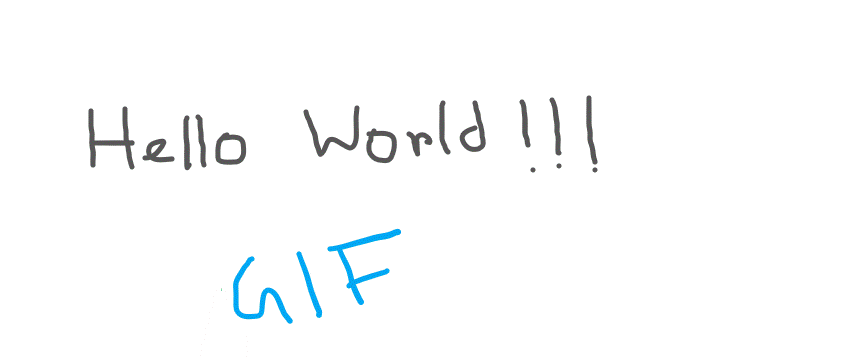 Hello World!!!
GIF